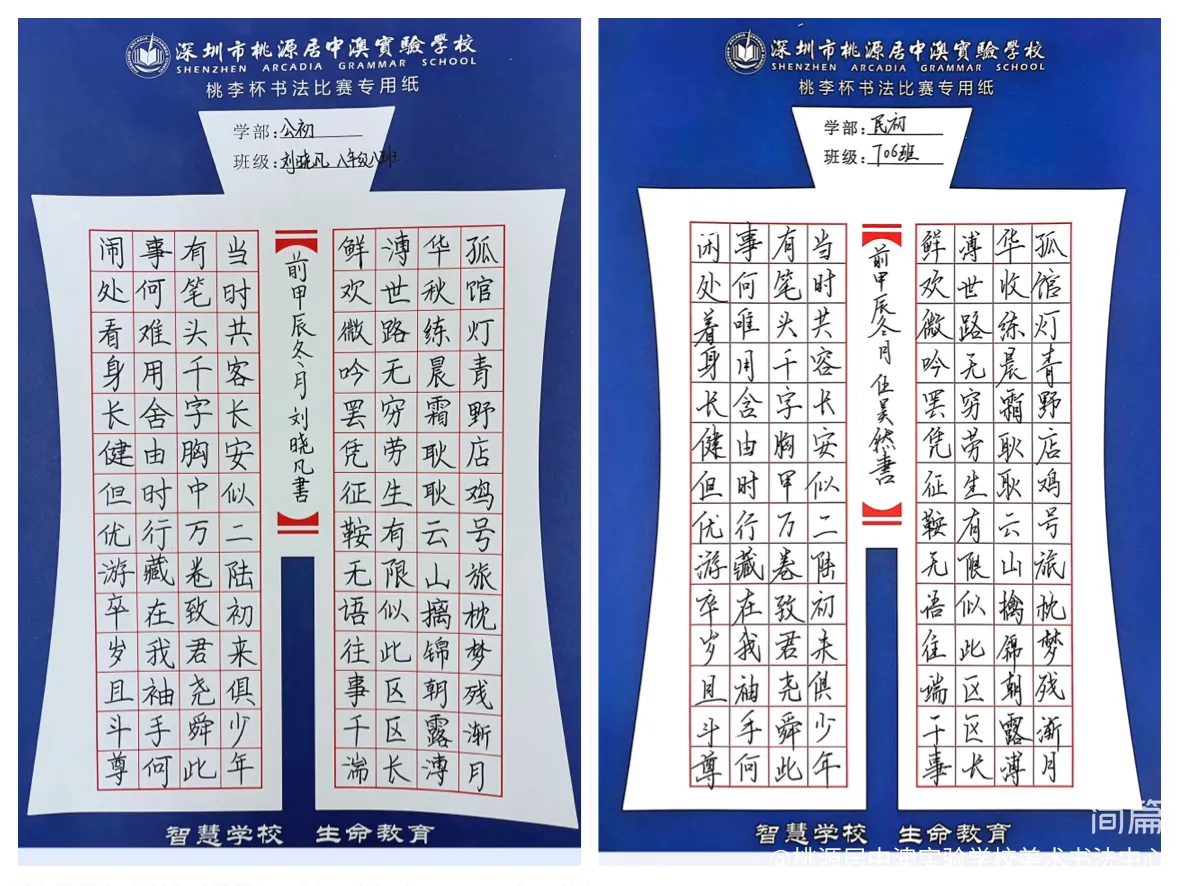 深圳市桃源居中澳實驗學校
SHENZHEN ARCADIA GRAMMAR SCHOOL
桃李杯书法比赛专用纸
学部:公初
班级:刘晓凡 八年级八班
孤馆灯青野店鸡号旅枕梦残渐月
华秋练晨霜耿耿云山摛锦朝露溥
溥世路无穷劳生有限似此区区长
鲜欢微吟罢凭征鞍无语往事千湍
当时共客长安似二陆初来俱少年
有笔头千字胸中万卷致君尧舜此
事何难用舍由时行藏在我袖手何
闹处看身长健但优游卒岁且斗尊
前甲辰冬月 刘晓凡書
智慧学校 生命教育
深圳市桃源居中澳實驗學校
SHENZHEN ARCADIA GRAMMAR SCHOOL
桃李杯书法比赛专用纸
学部:民初
班级:706班
孤馆灯青野店鸡号旅枕梦残渐月
华收练晨霜耿耿云山擒锦朝露溥
溥世路无穷劳生有限似此区区长
鲜欢微吟罢凭征鞍无语往端千事
当时共容长安似二陆初未俱少年
有笔头千字胸甲万卷致君尧舜此
事何唯用含由时行藏在我袖手何
闲处着身长健但优游卒岁且斗尊
前甲辰冬月 伍昊然書
智慧学校 生命教育
间篇
@桃源居中澳实验学校美术书法中心